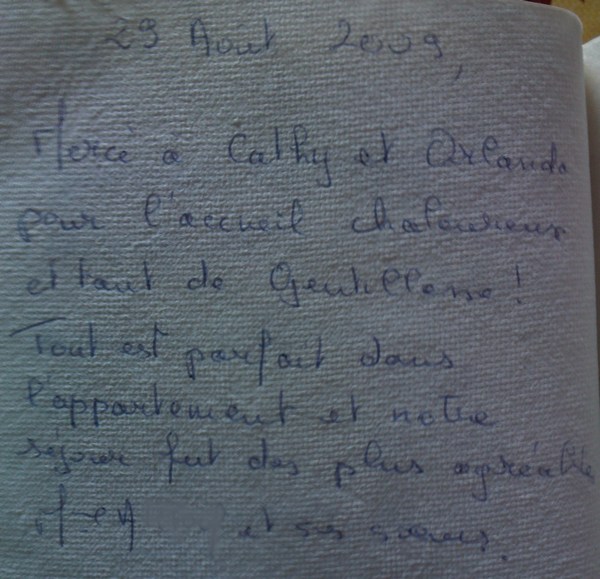 29 Août 2009,
Merci à Cathy et Orlando
pour l'accueil chaleureux
et tant de Gentillesse !
Tout est parfait dans
l'appartement et notre
séjour fut des plus agréable
et ses sœurs.